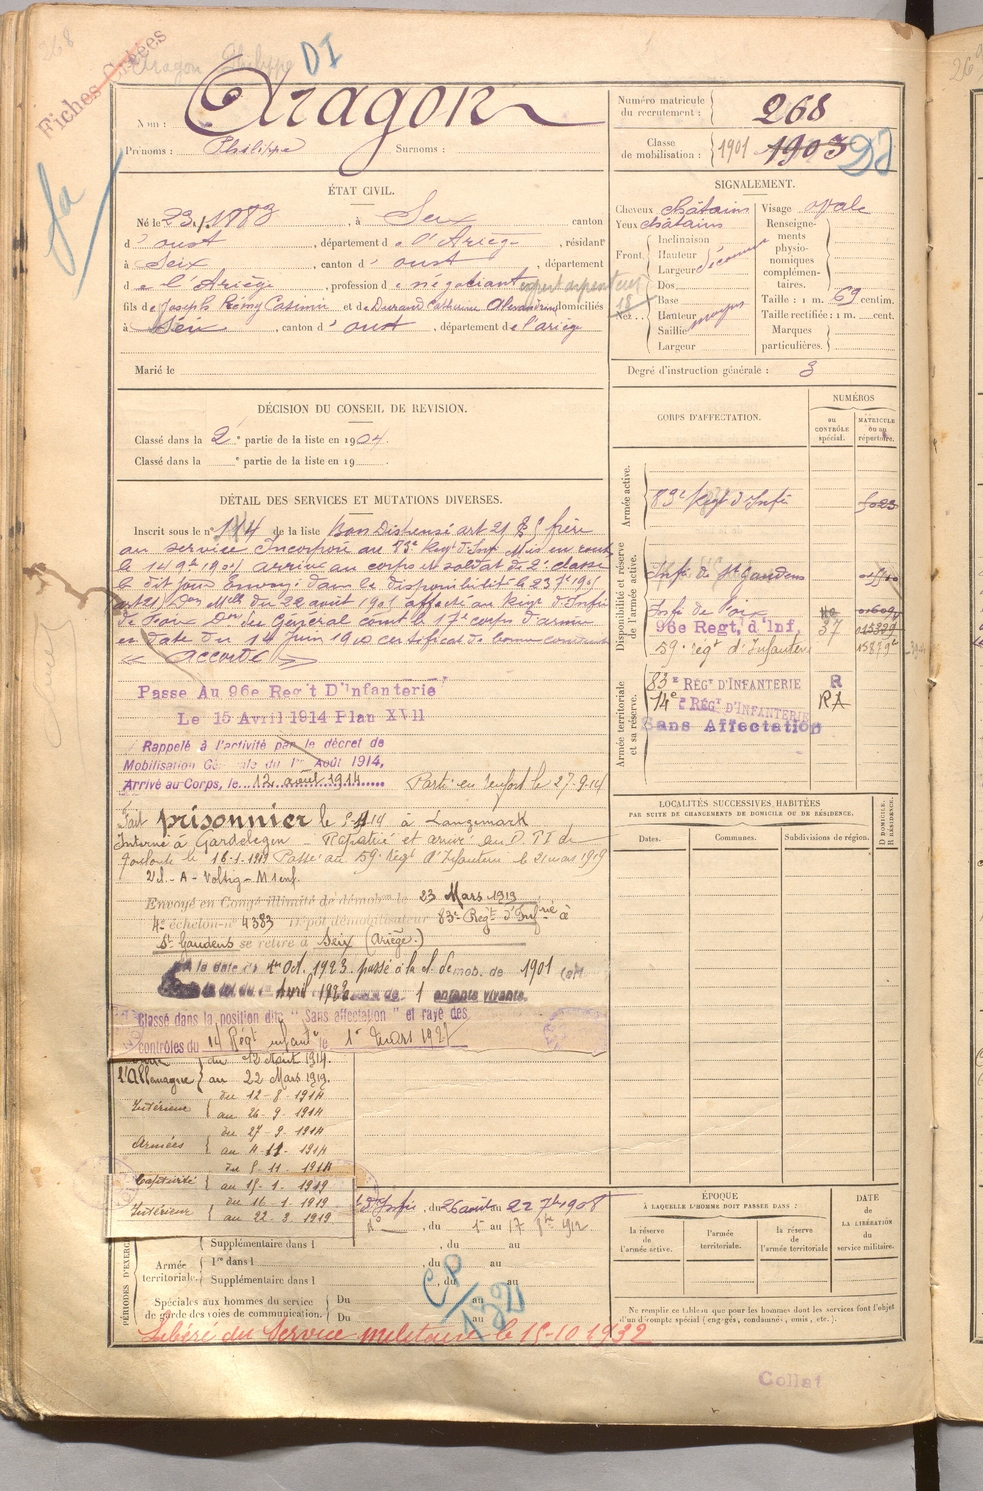 Fiches Créées
Aragon Philippe
DI
Nom : Aragon
Prénoms : Philippe Surnoms :
Numéro matricule du recrutement : 268
Classe de mobilisation : 1901 1903
ÉTAT CIVIL.
Né le 23 1883, à Seix canton
d'oust, département de l'Ariège, résidant
à Seix, canton d'oust, département
de l'Ariège, profession de négociant expert
fils de Joseph Rémy Casimir et de Durand Catherine Alexandrine domiciliés
à Seix, canton d'oust, département de l'ariège
Marié le
SIGNALEMENT.
Cheveux châtains Visage ovale
Yeux châtains
Front. Inclinaison Hauteur Largeur
Nez.. Dos Base Hauteur Saillie Largeur
moyen
Renseignements physionomiques complémentaires.
Taille : 1 m. 69 centim.
Taille rectifiée : 1 m. cent.
Marques particulières.
Degré d'instruction générale : 3
DÉCISION DU CONSEIL DE REVISION.
Classé dans la 2e partie de la liste en 1904.
Classé dans la e partie de la liste en 19
DÉTAIL DES SERVICES ET MUTATIONS DIVERSES.
Inscrit sous le n° 114 de la liste Bon Dispensé art 21 frère
au service Incorporé au 83e Régt d'Infie Mis en route
le 14 9bre 1904 arrivé au corps et soldat de 2e classe
le dit jour Envoyé dans la disponibilité le 23 7bre 1905
du 22 août 1905 affecté au Régt d'Infie
de Foix Don du Général comt le 17e corps d'armée
en date du 14 Juin 1910 certificat de bonne conduite
accordé
Passé Au 96e Reg't D'Infanterie
Le 15 Avril 1914 Plan XVII
Rappelé à l'activité par le décret de
Mobilisation Générale du 1er Août 1914,
Arrivé au Corps, le 12 août 1914 Parti en renfort le 27-9-14
Fait prisonnier le 14 à Langemark
Interné à Gardelegen - Rapatrié et arrivé au D
Toulouse le 16-1-1919 Passé au 59e régt d'Infanterie le 21 mars 1919
Envoyé en Congé illimité de démobon le 23 Mars 1919
4e échelon - n° 4383 Dépôt démobilisateur 83e Régt d'Infrie à
St Gaudens se retire à Seix (Ariège.)
à la date du 1er Oct. 1923 passé à la cl. de mob. de 1901
Avril 1 enfants vivants.
Classé dans la position dite "Sans affectation" et rayé des
contrôles du 14 Régt infantie le 1er mars 192
l'Allemagne du 12 Août 1914. au 22 Mars 1919.
Intérieur du 12-8-1914 au 26-9-1914
Armées du 27-9-1914 au 4-11-1914
Captivité du 5-11-1914 au 15-1-1919
Intérieur du 16-1-1919 au 22-3-1919
d'Infie, du 26 août au 22 7bre 1908
d°, du 1er au 17 1912
Supplémentaire dans l , du au
PÉRIODES D'EXERCICES
Armée territoriale.
1re dans l , du au
Supplémentaire dans l , du au
Spéciales aux hommes du service de garde des voies de communication.
Du au
Du au
Libéré du Service militaire le 15-10-1932
CORPS D'AFFECTATION.
NUMÉROS
au CONTRÔLE spécial.
MATRICULE ou au répertoire.
Armée active.
83e Régt d'Infie
5023
Disponibilité et réserve de l'armée active.
Infie de St Gaudens
Infie de Foix
96e Regt, d'Inf. 37
59e régt d'Infanterie
Armée territoriale et sa réserve.
83e RÉGt D'INFANTERIE R
14e RÉGt D'INFANTERIE RA
Sans Affectation
LOCALITÉS SUCCESSIVES HABITÉES
PAR SUITE DE CHANGEMENTS DE DOMICILE OU DE RÉSIDENCE.
Dates. Communes. Subdivisions de région. D DOMICILE. R RÉSIDENCE.
ÉPOQUE
À LAQUELLE L'HOMME DOIT PASSER DANS :
la réserve de l'armée active.
l'armée territoriale.
la réserve de l'armée territoriale
DATE DE LA LIBÉRATION du service militaire.
Ne remplir ce tableau que pour les hommes dont les services font l'objet
d'un décompte spécial (engagés, condamnés, omis, etc.).
Collat